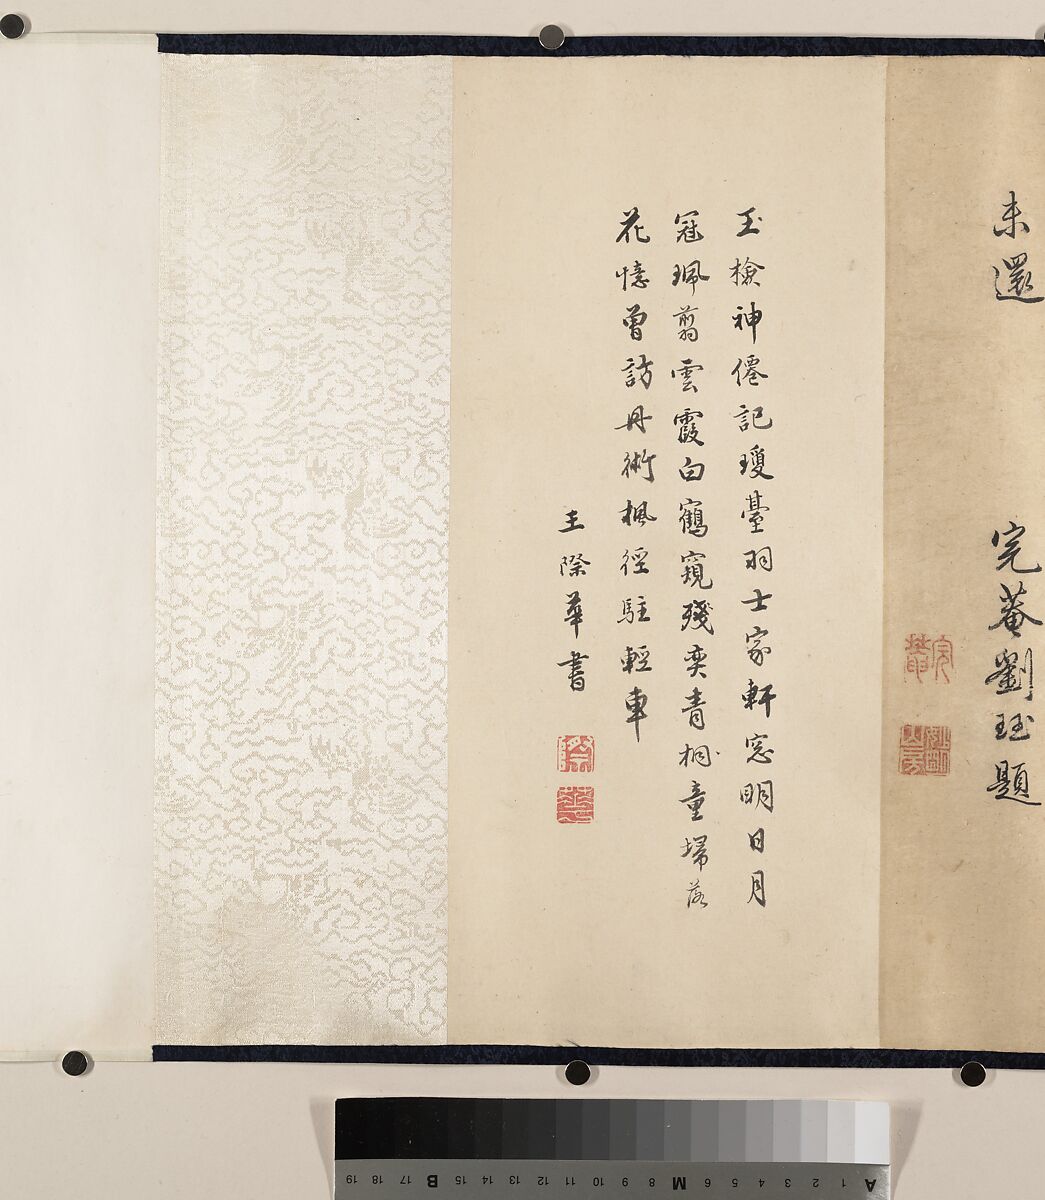 未還
完菴劉珏題
玉檢神僊記瓊臺羽士家軒窓明日月
冠珮翦雲霞白鶴窺殘奕青桐童埽落
花憶曾訪丹術楓徑駐輕車
王際華書
A 1 2 3 4 5 6 M 8 9 10 11 12 13 14 15 B 17 18 19